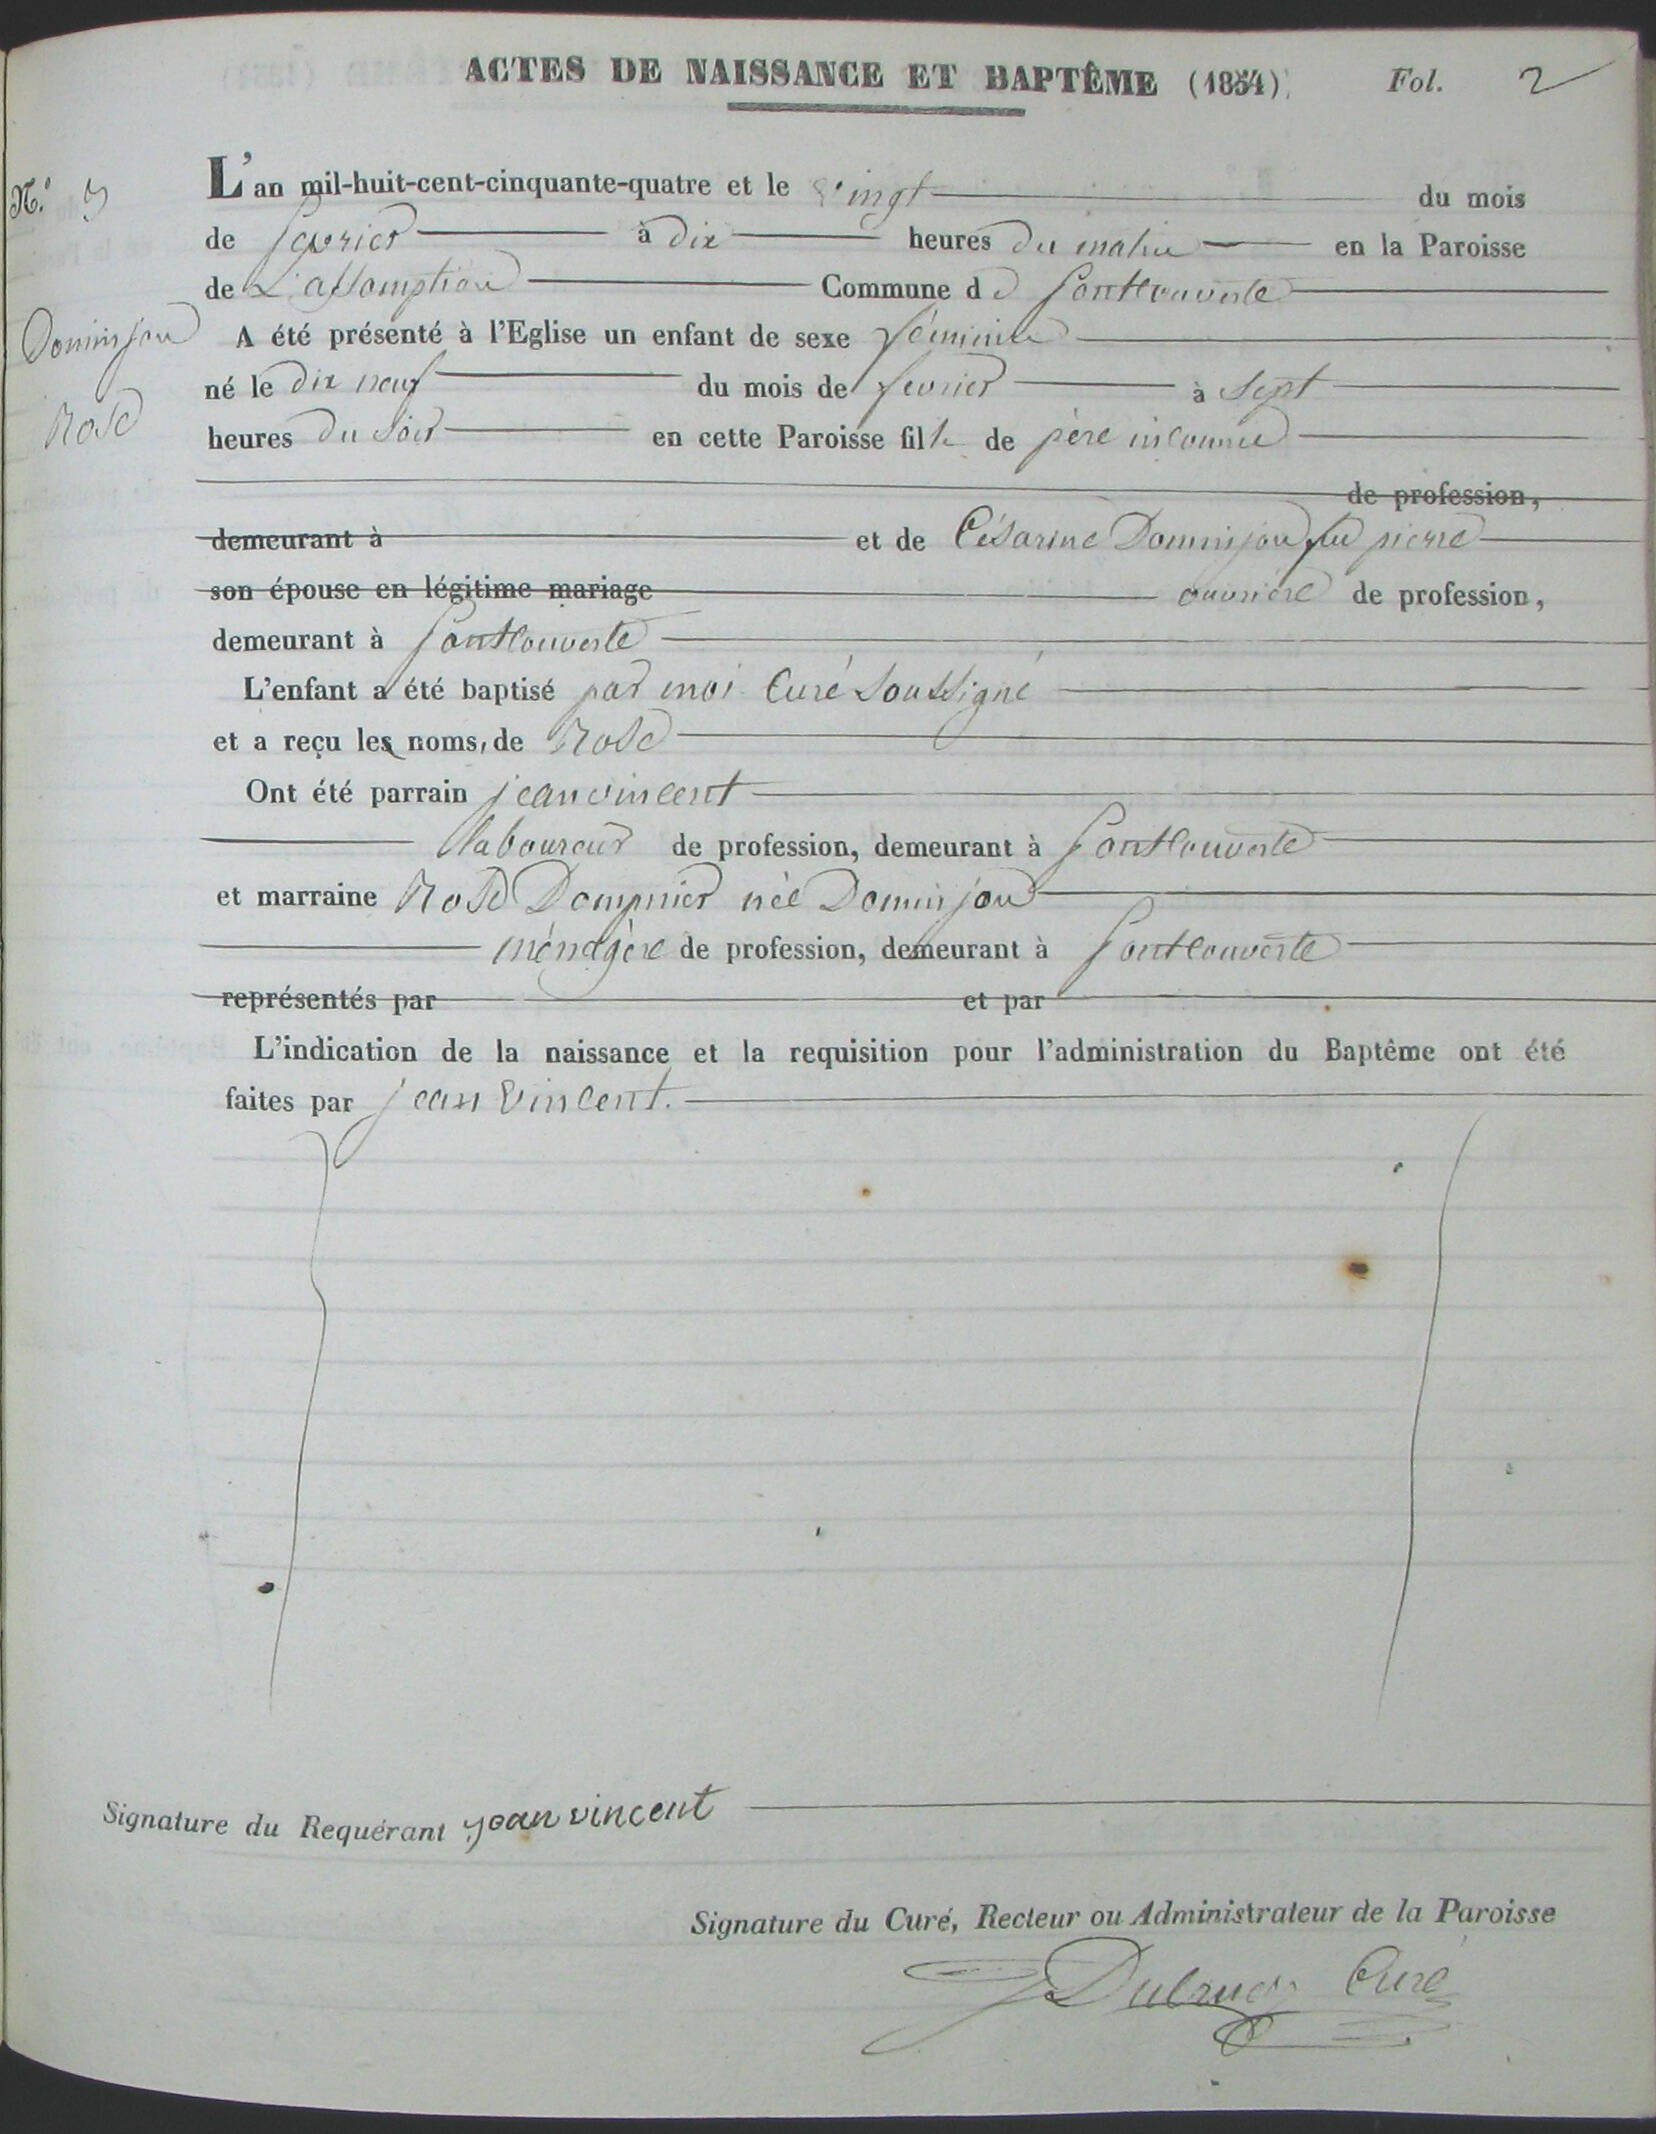 ACTES DE NAISSANCE ET BAPTÊME (1854) Fol. 2
N.º 3
L'an mil-huit-cent-cinquante-quatre et le vingt du mois
de fevrier à dix heures du matin en la Paroisse
de L'assomption Commune de fontcouverte
Dominjou
A été présenté à l'Eglise un enfant de sexe féminin
né le dix neuf du mois de fevrier à Sept
Rose
heures du Soir en cette Paroisse fille de père inconnu
de profession,
demeurant à et de Césarine Dominjou feu pierre
son épouse en légitime mariage ouvrière de profession,
demeurant à fontcouverte
L'enfant a été baptisé par moi Curé Soussigné
et a reçu les noms, de Rose
Ont été parrain jean vincent
laboureur de profession, demeurant à fontcouverte
et marraine Rose Dompnier née Dominjou
ménagère de profession, demeurant à fontcouverte
représentés par et par
L'indication de la naissance et la requisition pour l'administration du Baptême ont été
faites par jean Vincent.
Signature du Requérant jean vincent
Signature du Curé, Recteur ou Administrateur de la Paroisse
Curé